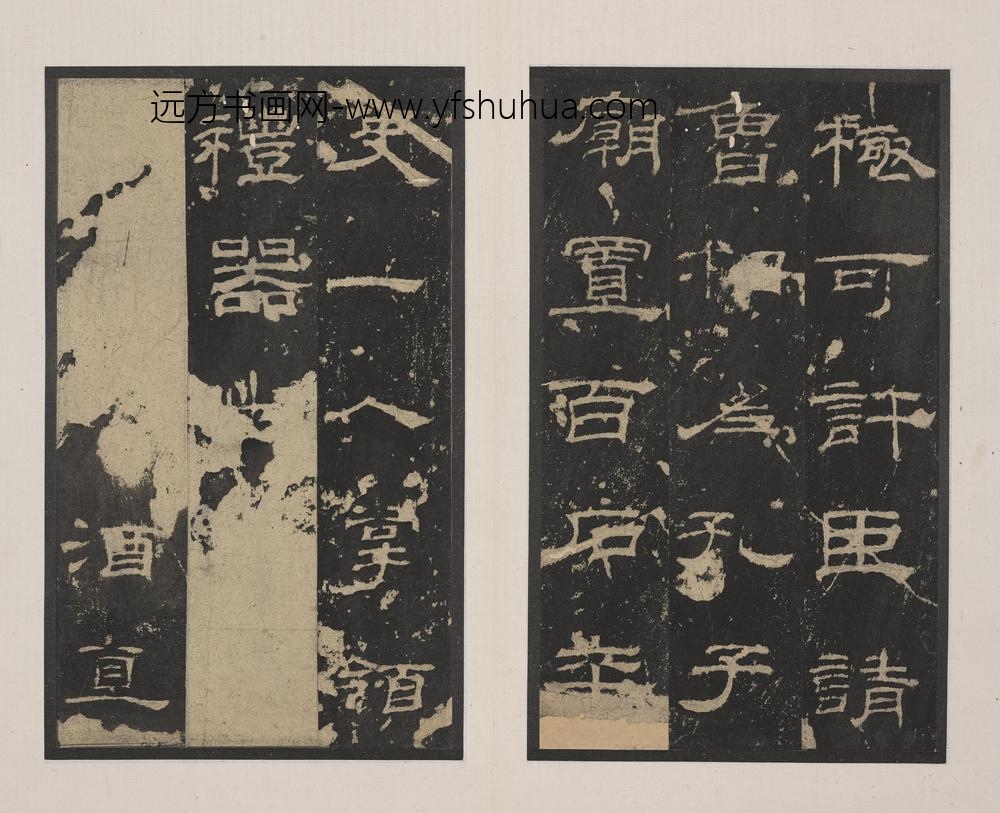 远方书画网-www.yfshuhua.com
極可許臣請
魯相為孔子
廟置百石卒
史一人掌領
禮器出
酒直